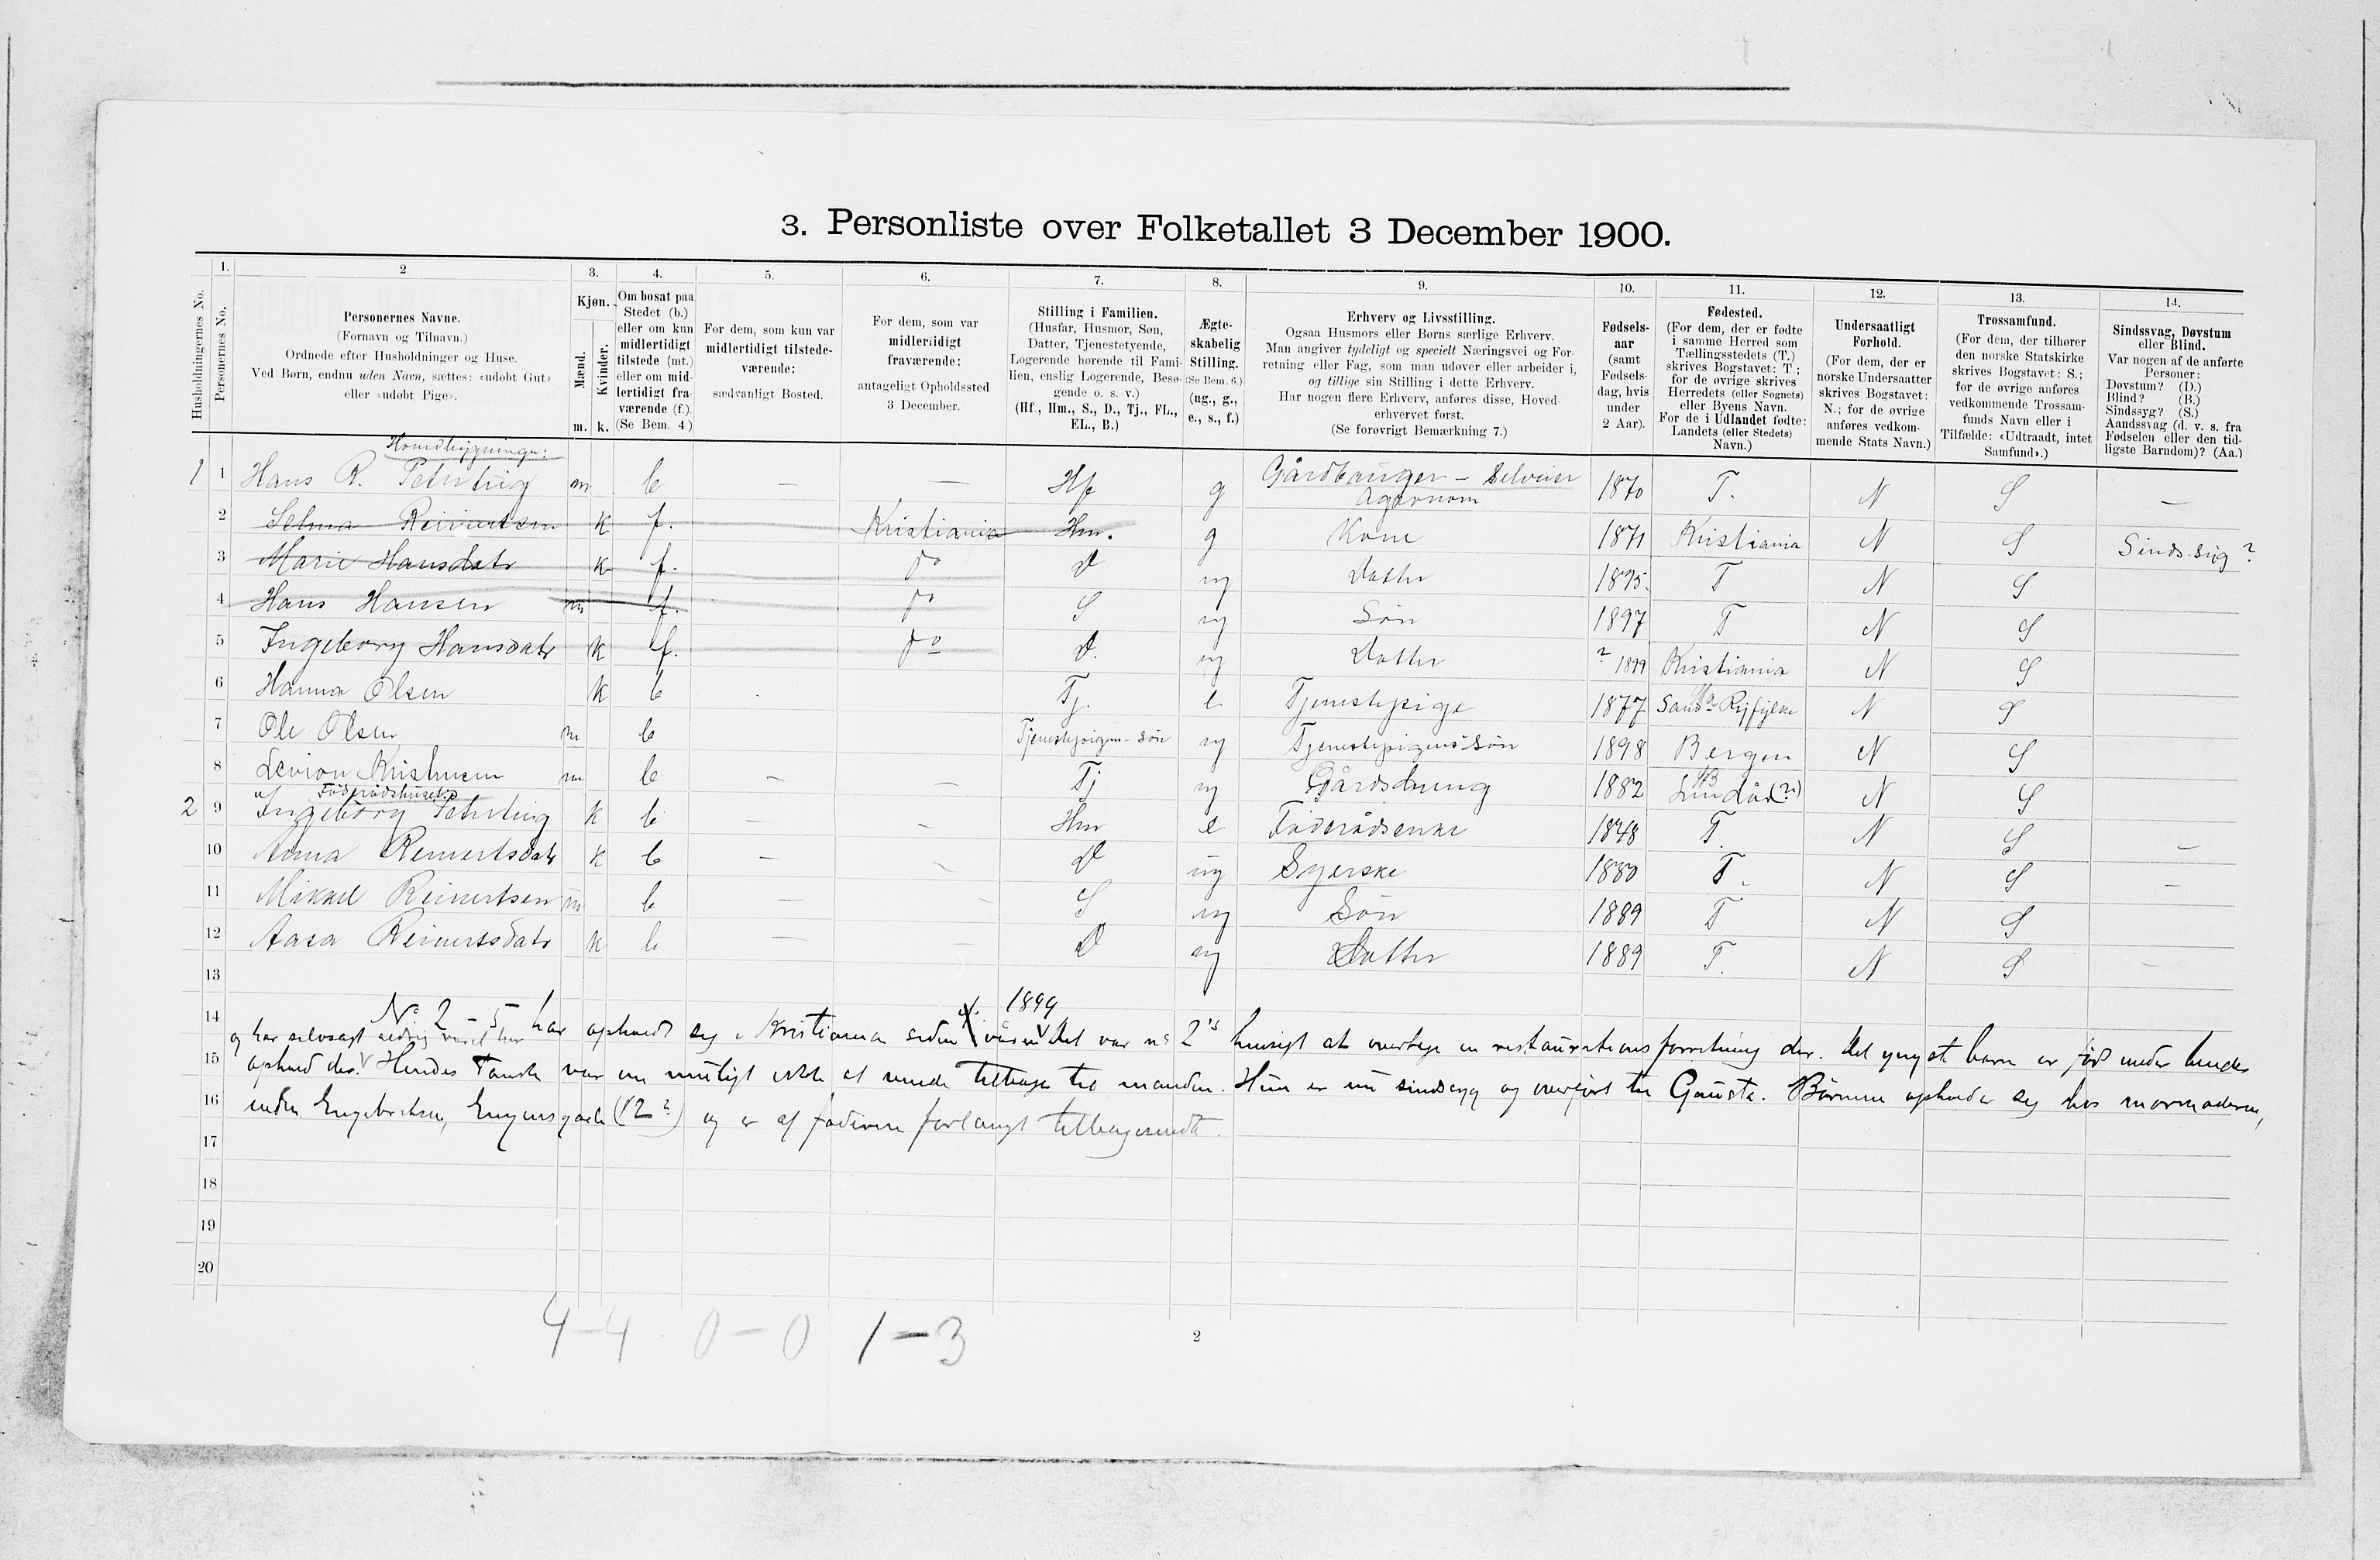 3. Personliste over Folketallet 3 December 1900.
Husholdningernes No.
1. Personernes No.
2
Personernes Navne.
(Fornavn og Tilnavn.)
Ordnede efter Husholdninger og Huse.
Ved Børn, endnu uden Navn, sættes: «udøbt Gut»
eller «udøbt Pige».
3.
Kjøn.
Mænd.
Kvinder.
m. k.
4.
Om bosat paa
Stedet (b.)
eller om kun
midlertidigt
tilstede (mt.)
eller om mid-
lertidigt fra-
værende (f.).
(Se Bem. 4.)
5.
For dem, som kun var
midlertidigt tilstede-
værende:
sædvanligt Bosted.
6.
For dem, som var
midlertidigt
fraværende:
antageligt Opholdssted
3 December.
7.
Stilling i Familien.
(Husfar, Husmor, Søn,
Datter, Tjenestetyende,
Logerende hørende til Fami-
lien, enslig Logerende, Besø-
gende o. s. v.)
(Hf., Hm., S., D., Tj., FL.,
EL., B.)
8.
Ægte-
skabelig
Stilling.
(Se Bem. 6.)
(ug., g.,
e., s., f.)
9.
Erhverv og Livsstilling.
Ogsaa Husmors eller Børns særlige Erhverv.
Man angiver tydeligt og specielt Næringsvei og For-
retning eller Fag, som man udøver eller arbeider i,
og tillige sin Stilling i dette Erhverv.
Har nogen flere Erhverv, anføres disse, Hoved-
erhvervet først.
(Se forøvrigt Bemærkning 7.)
10.
Fødsels-
aar
(samt
Fødsels-
dag, hvis
under
2 Aar).
11.
Fødested.
(For dem, der er fødte
i samme Herred som
Tællingsstedets (T.)
skrives Bogstavet: T.;
for de øvrige skrives
Herredets (eller Sognets)
eller Byens Navn.
For de i Udlandet fødte:
Landets (eller Stedets)
Navn.)
12.
Undersaatligt
Forhold.
(For dem, der er
norske Undersaatter
skrives Bogstavet:
N.; for de øvrige
anføres vedkom-
mende Stats Navn.)
13.
Trossamfund.
(For dem, der tilhører
den norske Statskirke
skrives Bogstavet: S.;
for de øvrige anføres
vedkommende Trossam-
funds Navn eller i
Tilfælde: «Udtraadt, intet
Samfund».)
14.
Sindssvag, Døvstum
eller Blind.
Var nogen af de anførte
Personer:
Døvstum? (D.)
Blind? (B.)
Sindssyg? (S.)
Aandssvag (d. v. s. fra
Fødselen eller den tid-
ligste Barndom)? (Aa.)
1 1 Hans R. m b — — Hf g Gårdbruger – Selveier 1870 T. N S —
Agronom
2 Selma Reinertsen k f. Kristiania Hm. g Kone 1871 Kristiania N S Sindssyg ?
3 Marie Hansdatr k f. do D ug Datter 1895. T N S
4 Hans Hansen m f. do S ug Søn 1897 T N S
5 Ingeborg Hansdatr k f. do D. ug Datter ? 1899 Kristiania N S
6 Hanna Olsen k b Tj. e Tjenestepige 1877 Sand Ryfylke N S
7 Ole Olsen m b Tjenestepigens søn ug Tjenestepigens søn 1898 Bergen N S
8 m b — — Tj ug Gårdsdreng 1882 (?) N S
Föderådshuset
2 9 Ingeborg k b — — Hm e Föderådsenke 1848 T. N S —
10 Anna Reinertsdatr k b — — D ug Syerske 1880 T. N S —
11 Mikkel Reinertsen m b — — S ug Søn 1889 T N S
12 Aasa Reinertsdatr k b — — D ug Datter 1889 T. N S —
13
1899
14 No 2 – 5 har opholdt sig i Kristiania siden våren Det var no 2's hensigt at overtage en restaurationsforretning der. Det yngste barn er föd under hendes
og har selvsagt aldrig været her
15 ophold der. Hendes Tanke var om muligt ikke at vende tilbage til manden. Hun er nu sindssyg og overført til Gausta. Börnene opholder sig hos mormoderen,
16 enken Engebretsen, (12?) og er af faderen forlangt tilbagesendt.
17
18
19
20
4–4 0–0 1–3
2